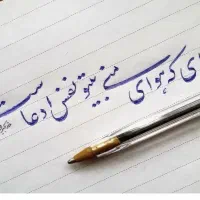 ای که هوای منی بی‌تو نفس ادعاست